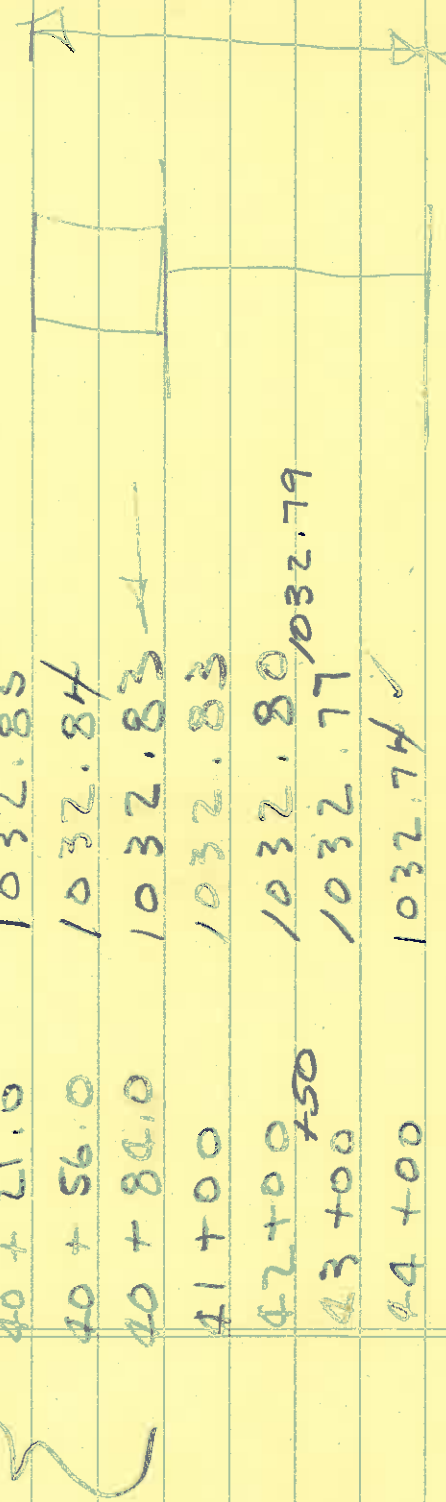 40 + 21.0 1032.85
40 + 56.0 1032.84
40 + 84.0 1032.83
41 + 00 1032.83
42 + 00 1032.80
+50 1032.79
43 + 00 1032.77
44 + 00 1032.74